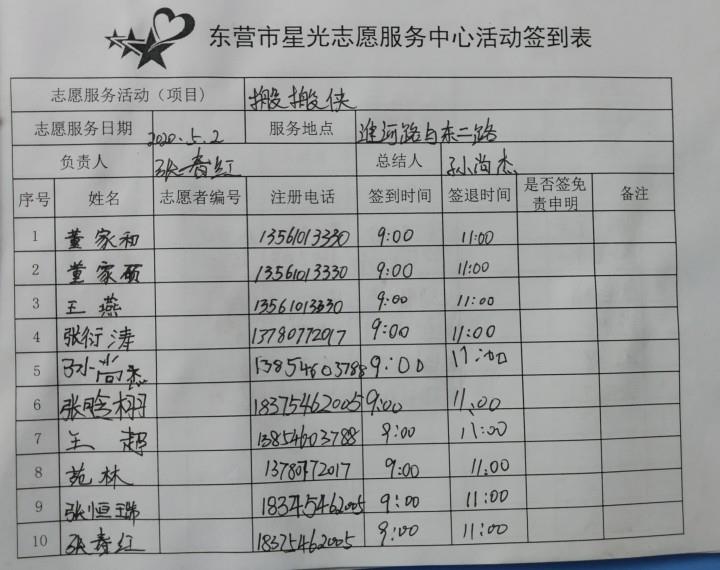 东营市星光志愿服务中心活动签到表
志愿服务活动（项目） 搬搬侠
志愿服务日期 2020.5.2 服务地点 淮河路与东二路
负责人 张春红 总结人 孙尚杰
序号 姓名 志愿者编号 注册电话 签到时间 签退时间 是否签免责申明 备注
1 董家和 13561013330 9:00 11:00
2 董家硕 13561013330 9:00 11:00
3 王燕 13561013330 9:00 11:00
4 张衍涛 13780772017 9:00 11:00
5 孙尚杰 13854603788 9:00 11:00
6 张晗栩 18375462005 9:00 11:00
7 王超 13854603788 9:00 11:00
8 苑林 13780772017 9:00 11:00
9 张恒瑞 18375462005 9:00 11:00
10 张春红 18375462005 9:00 11:00